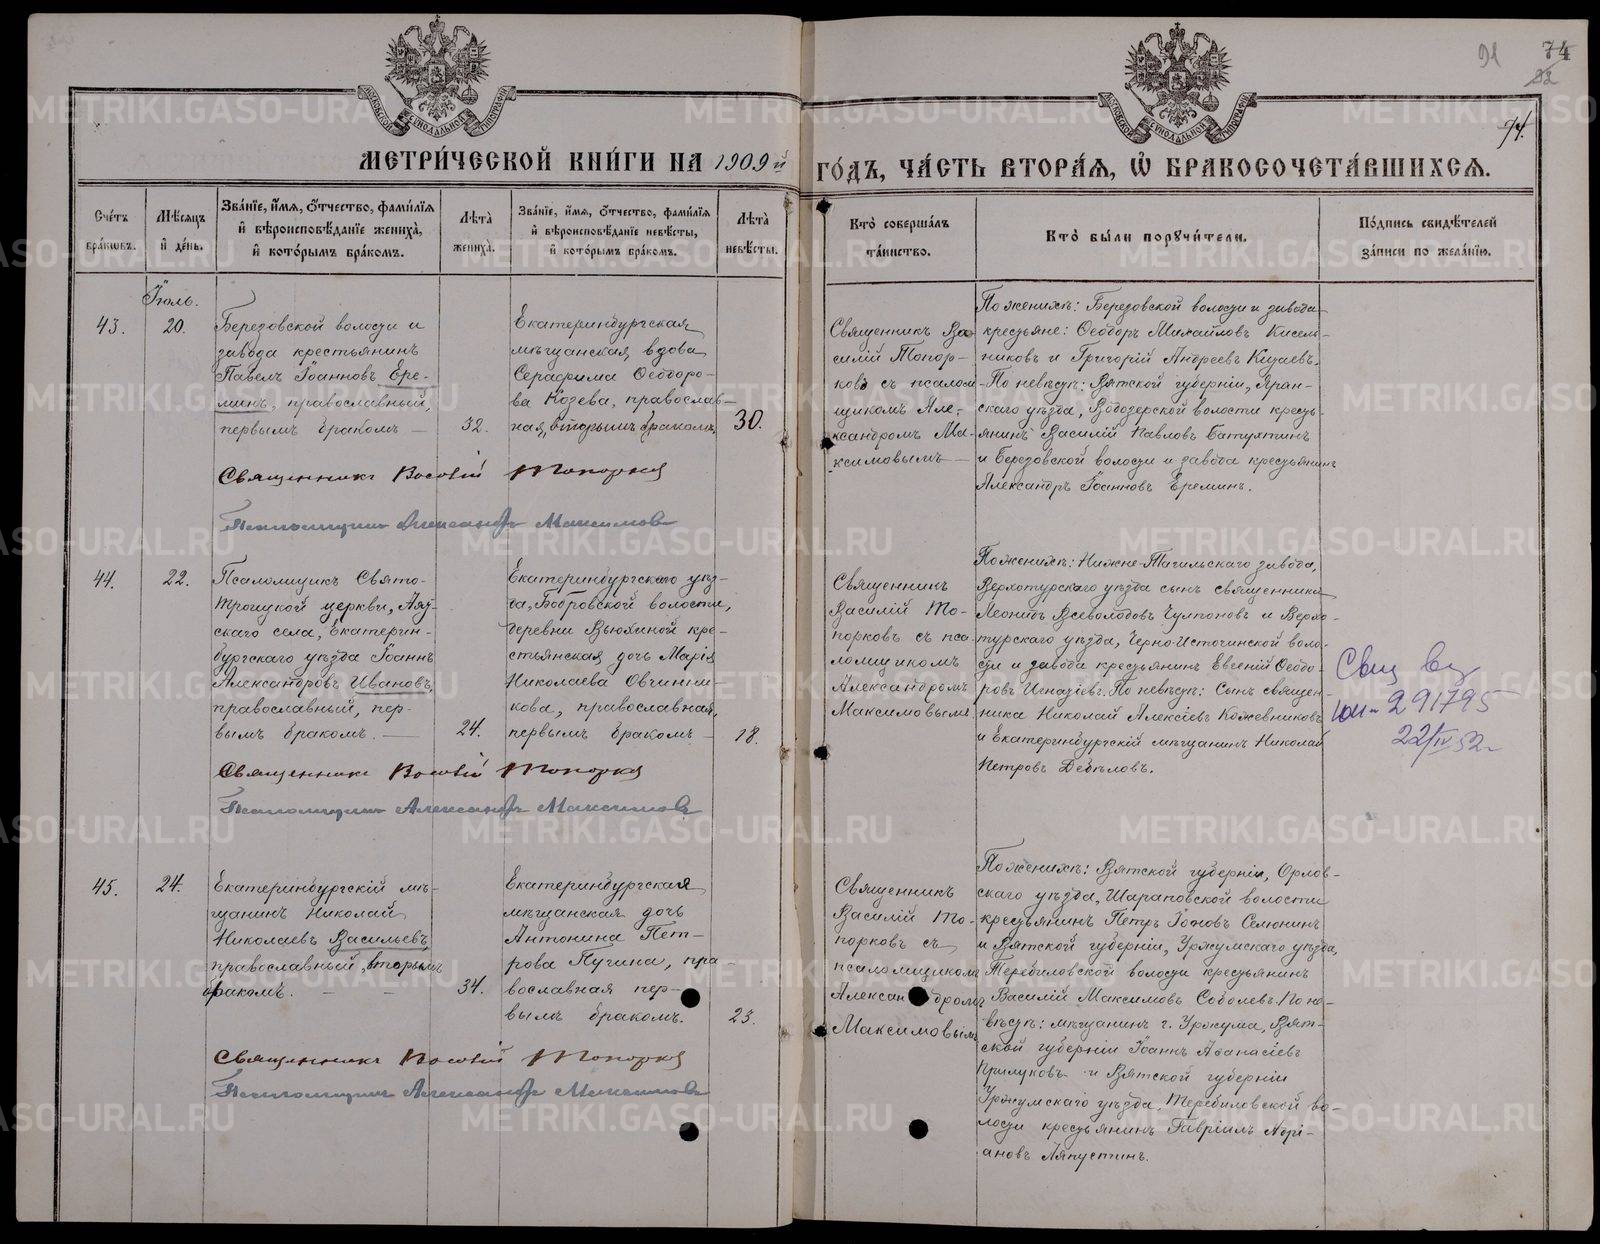 91
74
92
94.
МОСКОВСКОЙ СѴНОДАЛЬНОЙ ТИПОГРАФІИ
МОСКОВСКОЙ СѴНОДАЛЬНОЙ ТИПОГРАФІИ
МЕТРИ́ЧЕСКОЙ КНИ́ГИ НА 1909й ГО́ДЪ, ЧА́СТЬ ВТОРА́Я, Ѡ҆ БРАКОСОЧЕТА́ВШИХСЯ.
Сче́тъ бра́кωвъ.
Мѣ́сяцъ и҆ де́нь.
Зва́нїе, и҆́мя, ѻ҆́тчество, фами́лїя и҆ вѣроисповѣ́данїе жениха̀, и҆ кото́рымъ бра́комъ.
Лѣ́та̀ жениха̀.
Зва́нїе, и҆́мя, ѻ҆́тчество, фами́лїя и҆ вѣроисповѣ́данїе невѣ́сты, и҆ кото́рымъ бра́комъ.
Лѣ́та̀ невѣ́сты.
Кто̀ соверша́лъ та́инство.
Кто̀ бы́ли порꙋчи́тели.
По́дпись свидѣ́телей за́писи по жела́нїю.
Іюль.
43.
20.
Березовской волости и
завода крестьянинъ
Павелъ Іоанновъ Ере-
минъ, православный,
первымъ бракомъ —
32.
Екатеринбургская
мѣщанская вдова
Серафима Ѳеодоро-
ва Козева, православ-
ная, вторымъ бракомъ,
30.
Священникъ Ва-
силій Топор-
ковъ съ псалом-
щикомъ Але-
ксандромъ Ма-
ксимовымъ —
По женихѣ: Березовской волости и завода
крестьяне: Ѳеодоръ Михайловъ Кисель-
никовъ и Григорій Андреевъ Кицаевъ.
По невѣстѣ: Вятской губерніи, Яран-
скаго уѣзда, Водозерской волости кресть-
янинъ Василій Павловъ Батухтинъ
и Березовской волости и завода крестьянинъ
Александръ Іоанновъ Ереминъ.
Священникъ Василій Топорковъ
Псаломщикъ Александръ Максимовъ
44.
22.
Псаломщикъ Свято-
троицкой церкви, Аяу́
скаго села, Екатерин-
бургскаго уѣзда Іоаннъ
Александровъ Ивановъ,
православный, пер-
вымъ бракомъ. —
24.
Екатеринбургскаго уѣз-
да, Бобровской волости,
деревни Вьюхиной кре-
стьянская дочь Марія
Николаева Овчинни-
кова, православная,
первымъ бракомъ —
18.
Священникъ
Василій То-
порковъ съ пса-
ломщикомъ
Александромъ
Максимовымъ
По женихѣ: Нижне-Тагильскаго завода,
Верхотурскаго уѣзда сынъ священника
Леонидъ Всеволодовъ Чулпоновъ и Верхо-
турскаго уѣзда, Черно-Источинской воло-
сти и завода крестьянинъ Евгеній Ѳеодо-
ровъ Игнатіевъ. По невѣстѣ: Сынъ священ-
ника Николай Алексіевъ Кожевниковъ
и Екатеринбургскій мѣщанинъ Николай
Петровъ Дебеловъ.
291795
22/IV 52
Священникъ Василій Топорковъ
Псаломщикъ Александръ Максимовъ
45.
24.
Екатеринбургскій мѣ-
щанинъ Николай
Николаевъ Васильевъ,
православный, вторымъ
бракомъ. — —
34.
Екатеринбургская
мѣщанская дочь
Антонина Пет-
рова Пугина, пра-
вославная пер-
вымъ бракомъ.
23.
Священникъ
Василій То-
порковъ съ
псаломщикомъ
Александромъ
Максимовымъ
По женихѣ: Вятской губерніи, Орлов-
скаго уѣзда, Шараповской волости
крестьянинъ Петръ Іоновъ Семонинъ
и Вятской губерніи, Уржумскаго уѣзда,
Теребиловской волости крестьянинъ
Василій Максимовъ Соболевъ. По не-
вѣстѣ: мѣщанинъ г. Уржума, Вят-
ской губерніи Іоаннъ Аѳанасіевъ
Прилуковъ и Вятской губерніи
Уржумскаго уѣзда, Теребиловской во-
лости крестьянинъ Гавріилъ Адрі-
ановъ Ляпустинъ.
Священникъ Василій Топорковъ
Псаломщикъ Александръ Максимовъ
METRIKI.GASO-URAL.RU